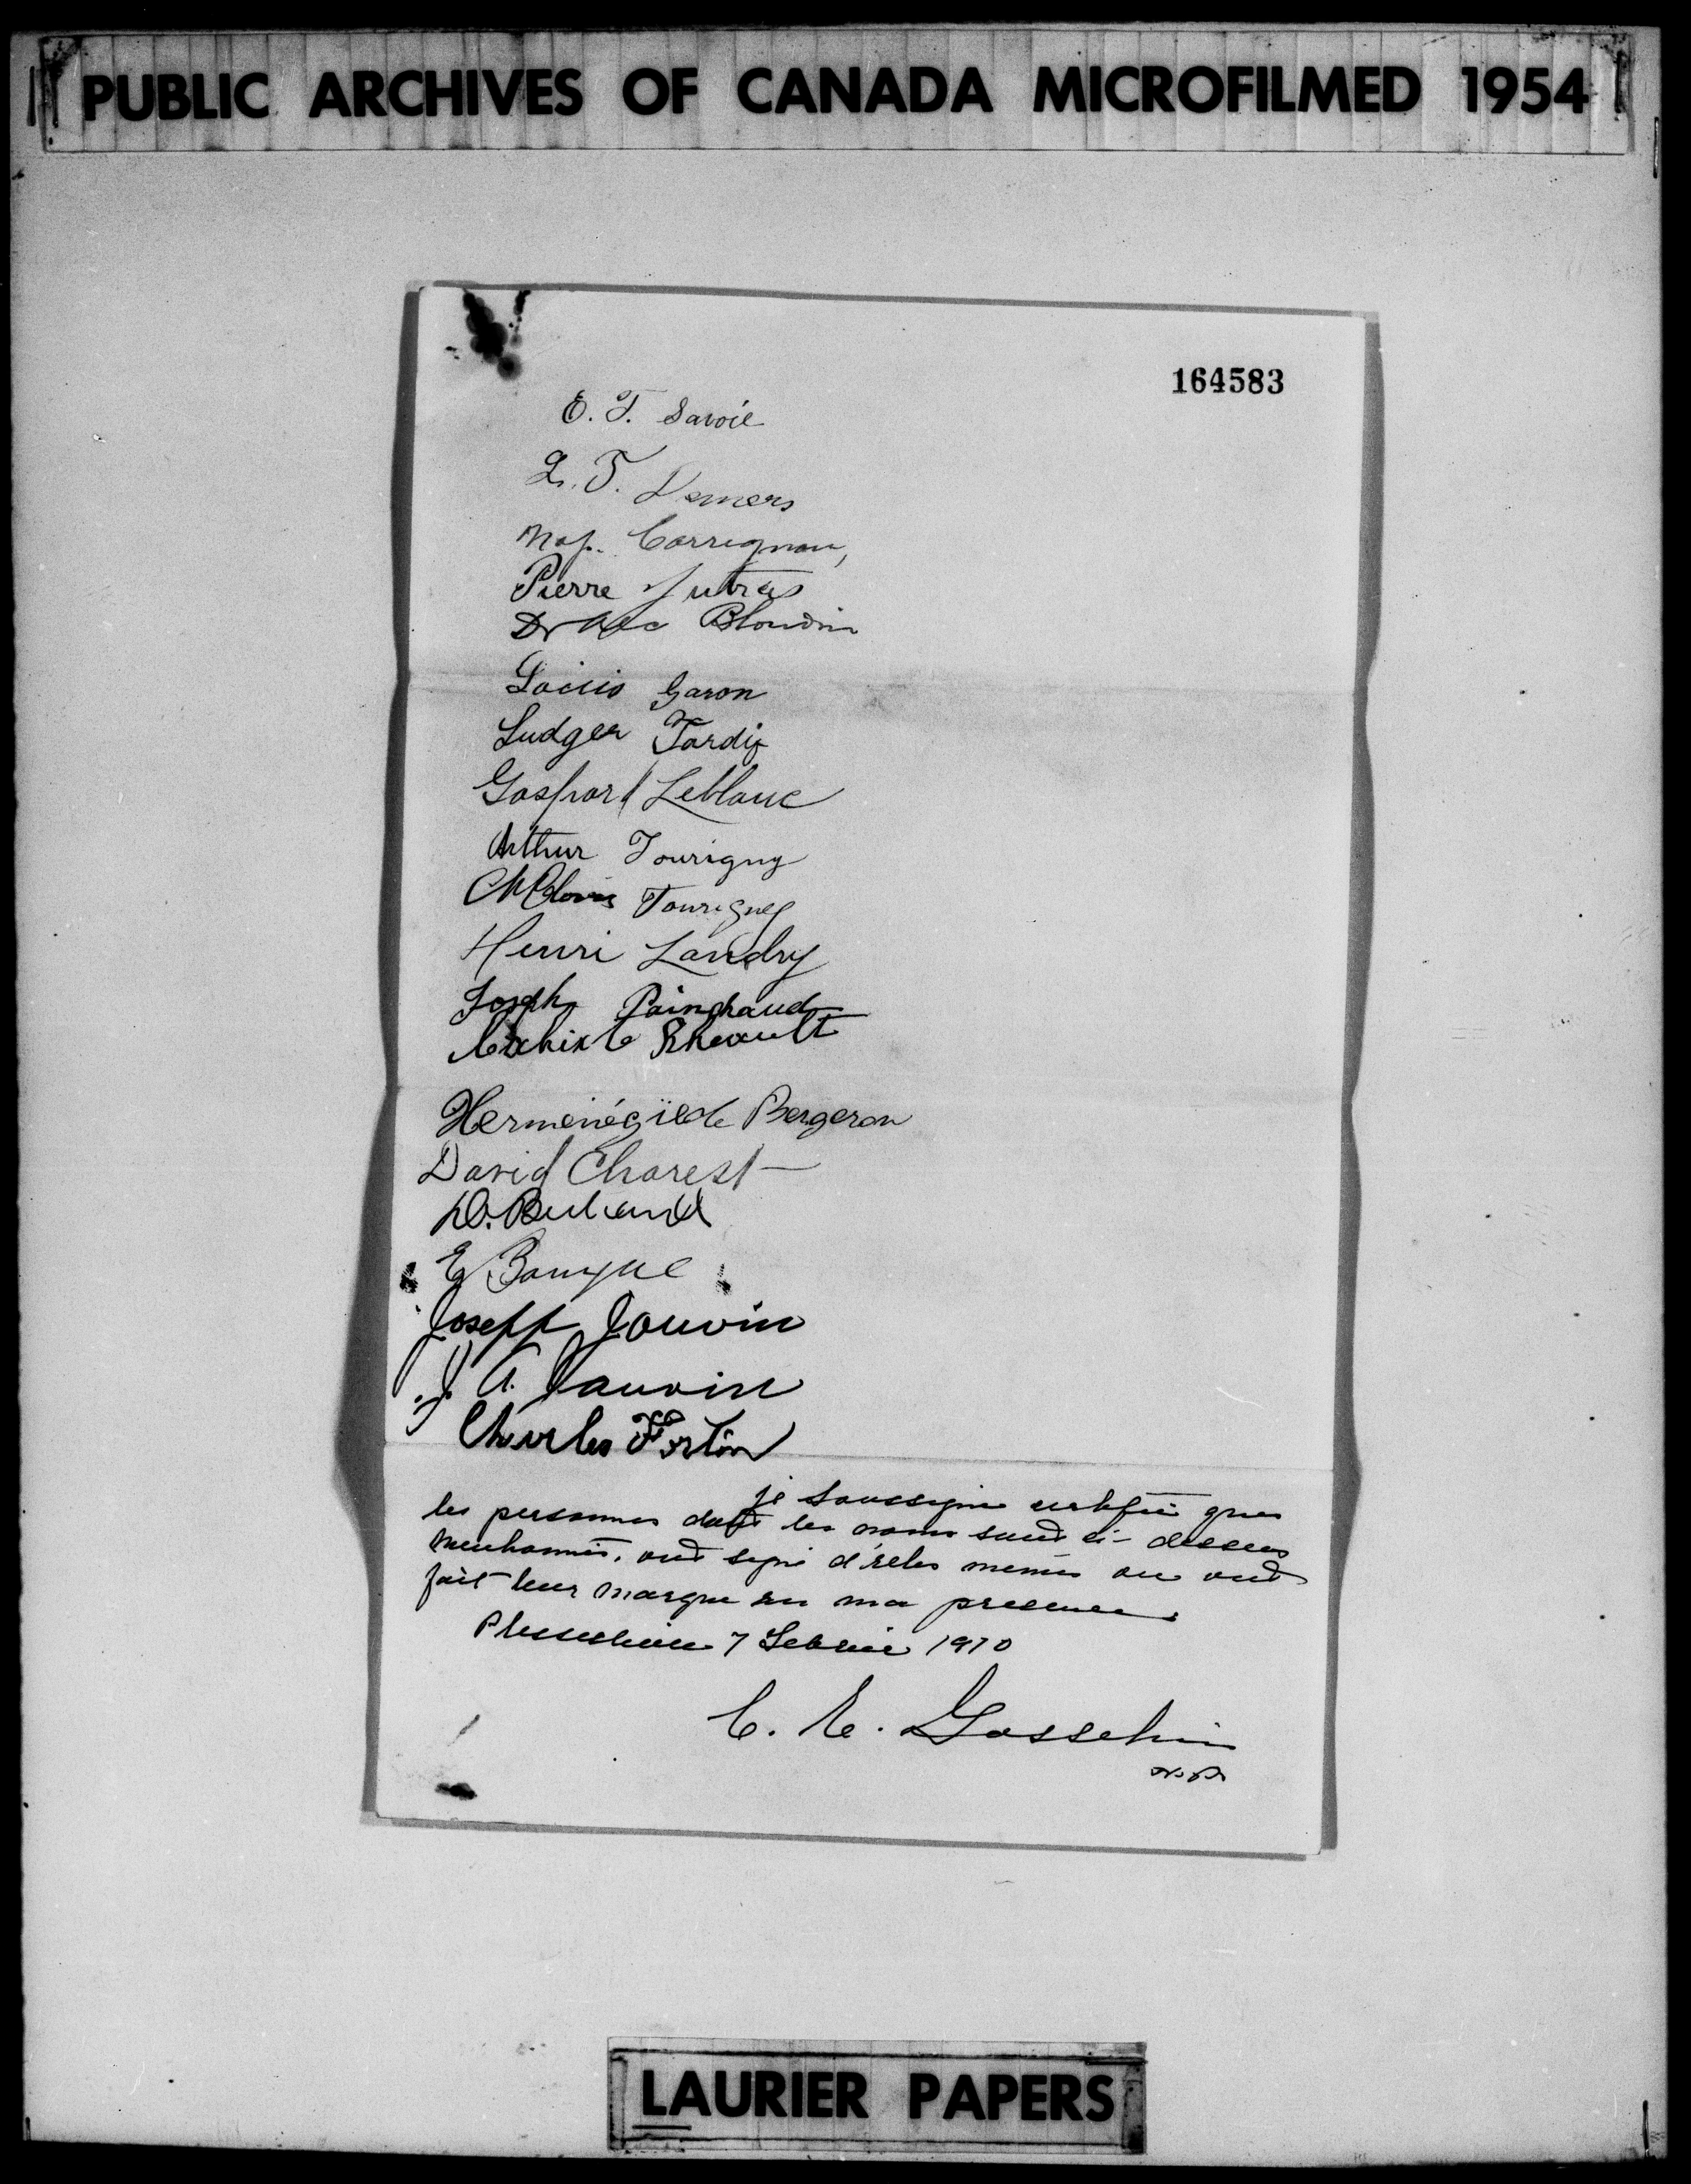 PUBLIC ARCHIVES OF CANADA MICROFILMED 1954
164583
E. T. Savoie
L. T. Demers
Nap. Carrignan,
Pierre Jutras
Dr Blondin
Louis Garon
Ludger Tardif
Gaspard Leblanc
Arthur Tourigny
Tourigny
Henri Landry
Joseph Painchaud
Rheault
Herménégilde Bergeron
David Charest
E
Joseph Jauvin
J. A. Jauvin
Charles Fortin
je soussigné certifie que
les personnes dont les noms sont ci-dessus
mentionnés, ont signé d'elles mêmes ou ont
fait leur marque en ma présence.
Plessisville 7 Février 1910
C. E. Gosselin
N.P.
LAURIER PAPERS